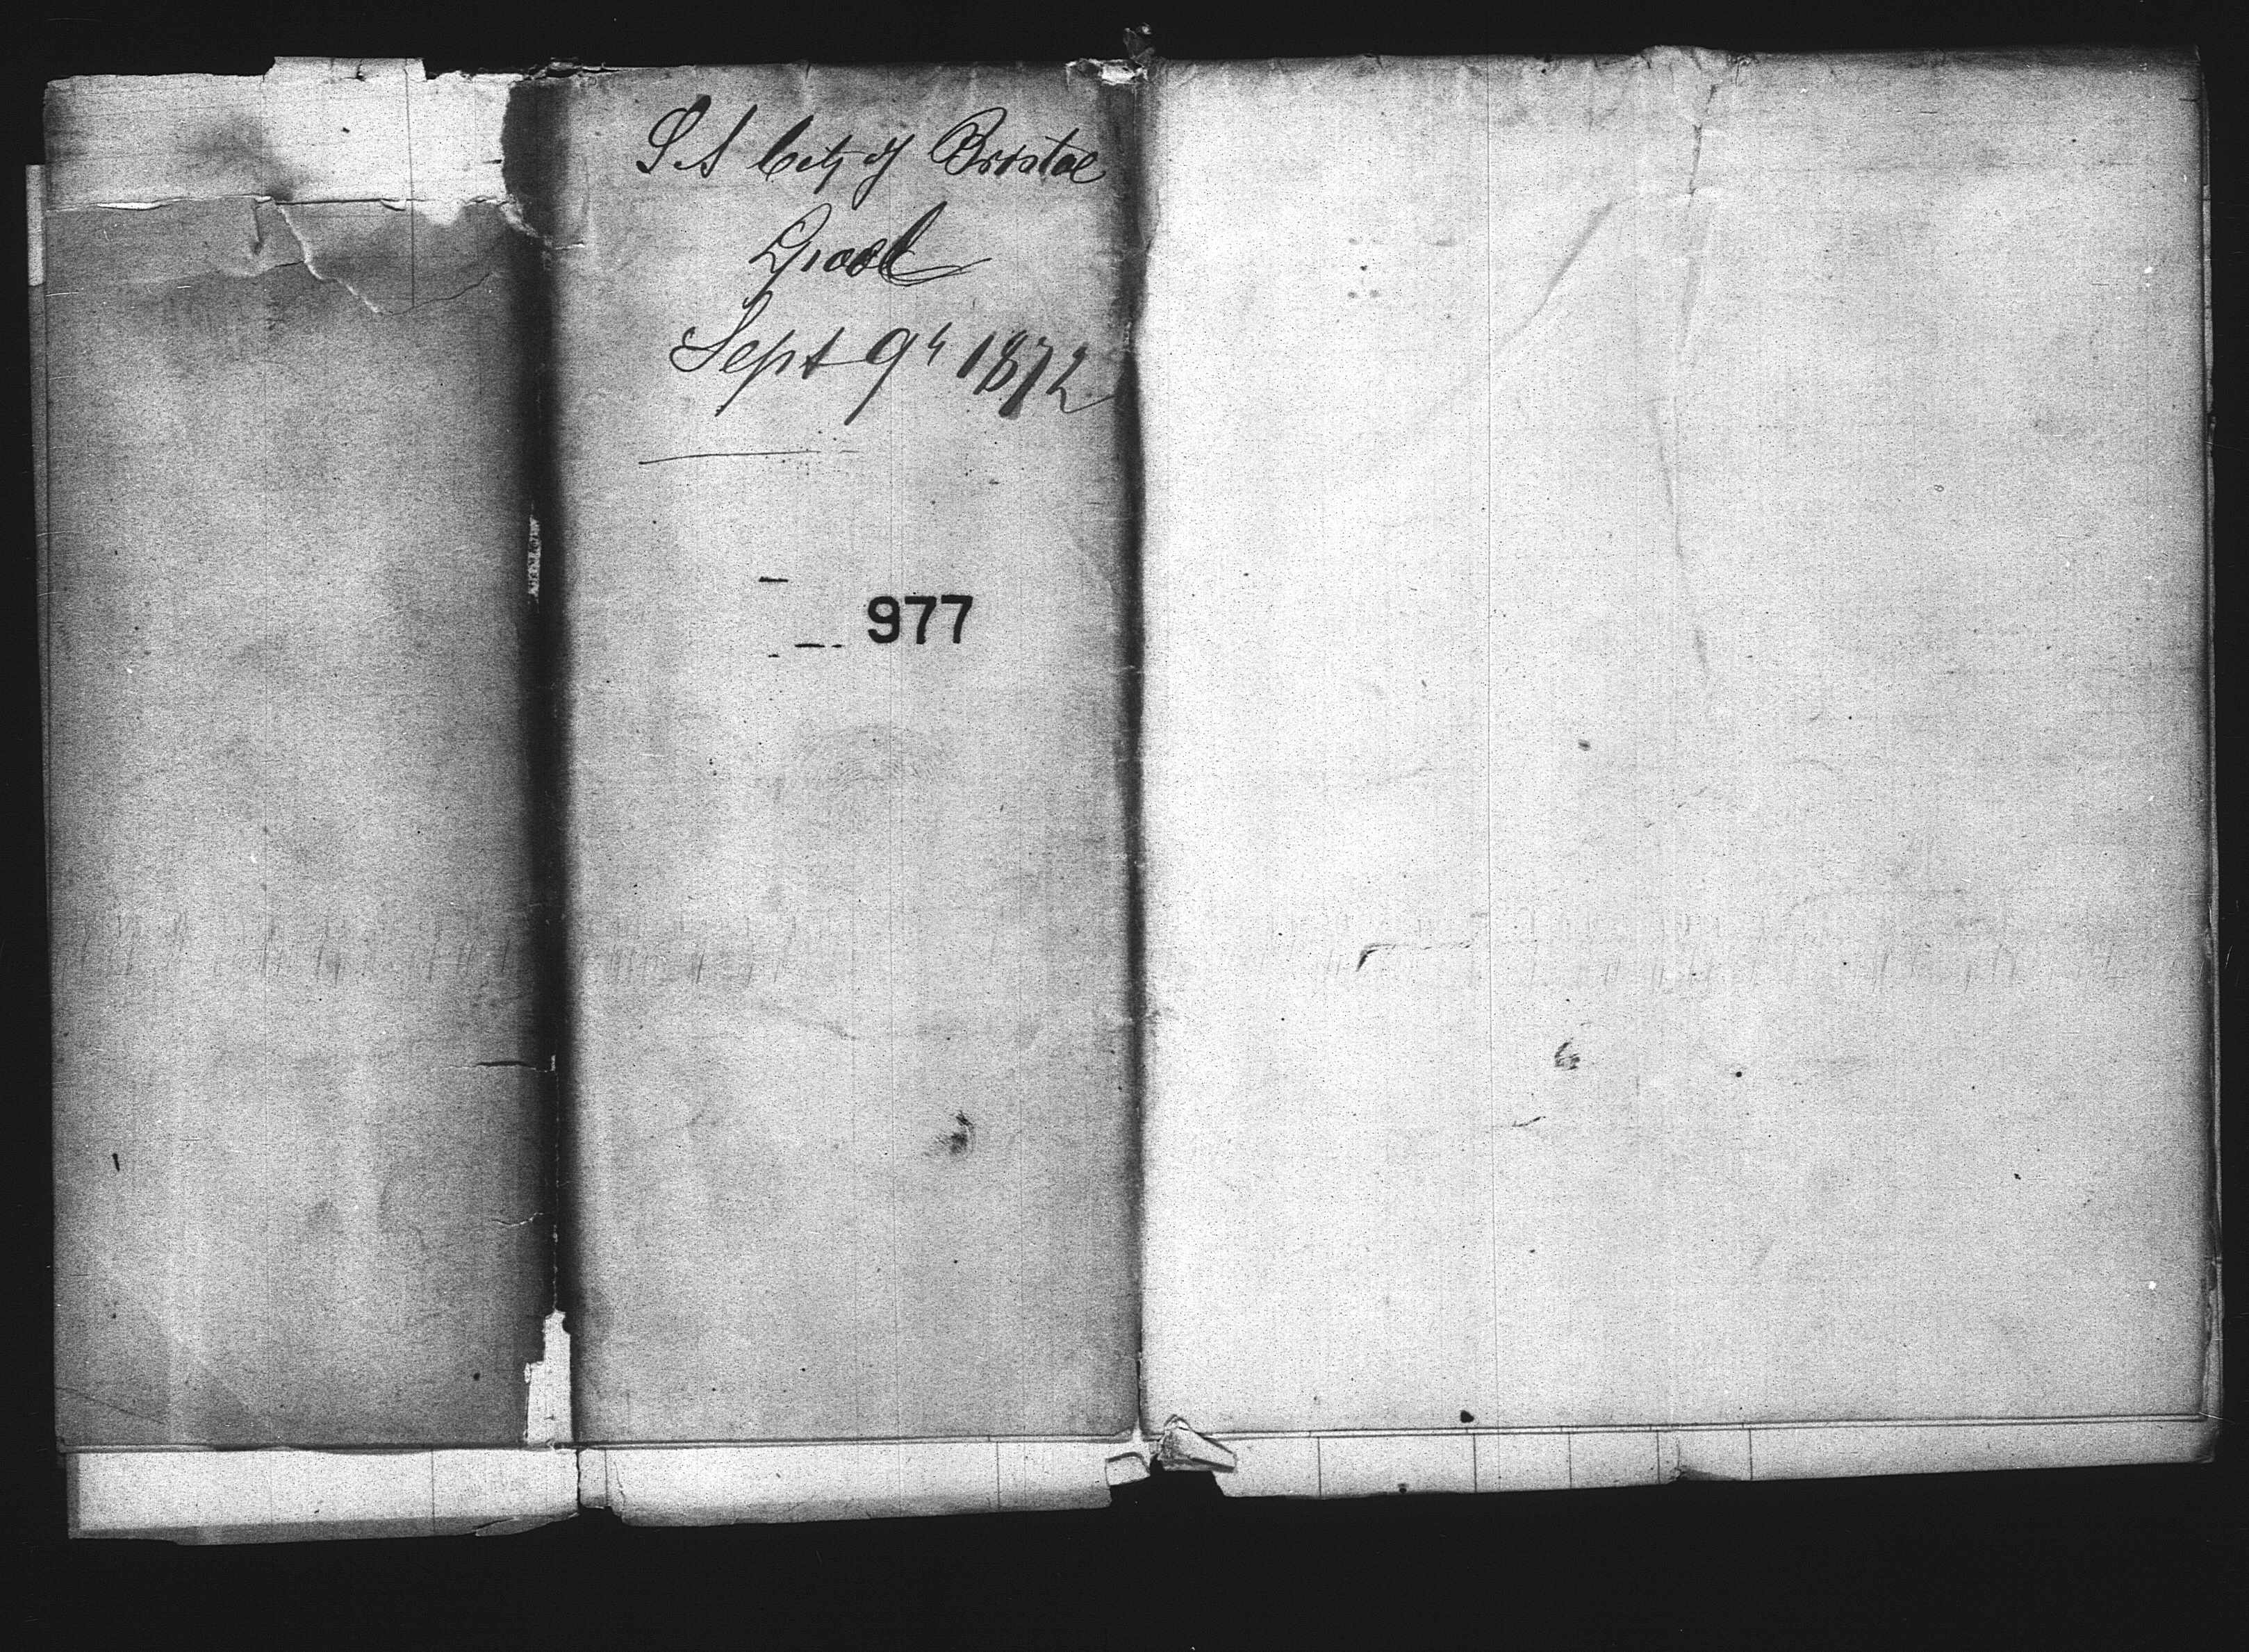 S.S City of Bristol
Sept 9th 1872
977